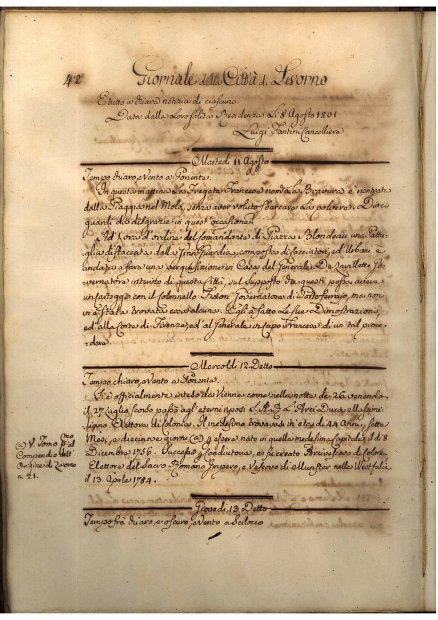 42 Giornale della Città di Livorno
E tutto a chiara notizia di ciascuno.
Data dalla Loro solita Residenza Li 8 Agosto 1801
Luigi Fantini Cancelliere
Martedì 11. Agosto
Tempo chiaro, e Vento a Ponente.
In questa mattina La Fregata Francese nomata La Bravura è rientrata
dalla Spiaggia nel Molo, senza aver voluto sbarcare La polvere. Dio ci
guardi da disgrazie in quest'occasione.
Ad 1. ora d'ordine del Comandante di Piazza Blondeau una Pattu-
glia distaccata dalla Gran Guardia, composta di Cacciatori, ed Urbani è
andata a fare una perquisizione in Casa del Generale De Lavillette Go-
vernatore interino di questa Città, sul supposto che questi possa avere
un carteggio con il Colonnello Fisson Governatore di Portoferraio, ma non
vi è stata trovata cosa alcuna. Egli ha fatto Le sue Dimostrazioni,
ed alla Corte di Firenze, ed al Generale in Capo Francese di un tal proce-
dere.
Mercoldì 12. Detto
Tempo chiaro, e Vento a Ponente.
Si è officialmente inteso da Vienna, come nella notte de 26 venendo
il 27 Luglio scorso passò agl'eterni riposi S. A. R. L'Arci Duca Massimi-
liano Elettore di Colonia. Il medesimo trovavasi in età di 44 Anni, sette
Mesi, e diecinove giorni (a) essere nato in quella medesima Capitale il dì 8
Dicembre 1756. Successe Coadiutore, e fu creato Arcivescovo di Colonia
Elettore del Sacro Romano Impero, e Vescovo di Munster nella Westfalia
il 13 Aprile 1784.
(a) V. Tomo pmo del
Compendio dell'
Origine di Livorno
a 21.
Giovedì 13 Detto
Tempo fra chiaro, e oscuro, e Vento a Scilocco